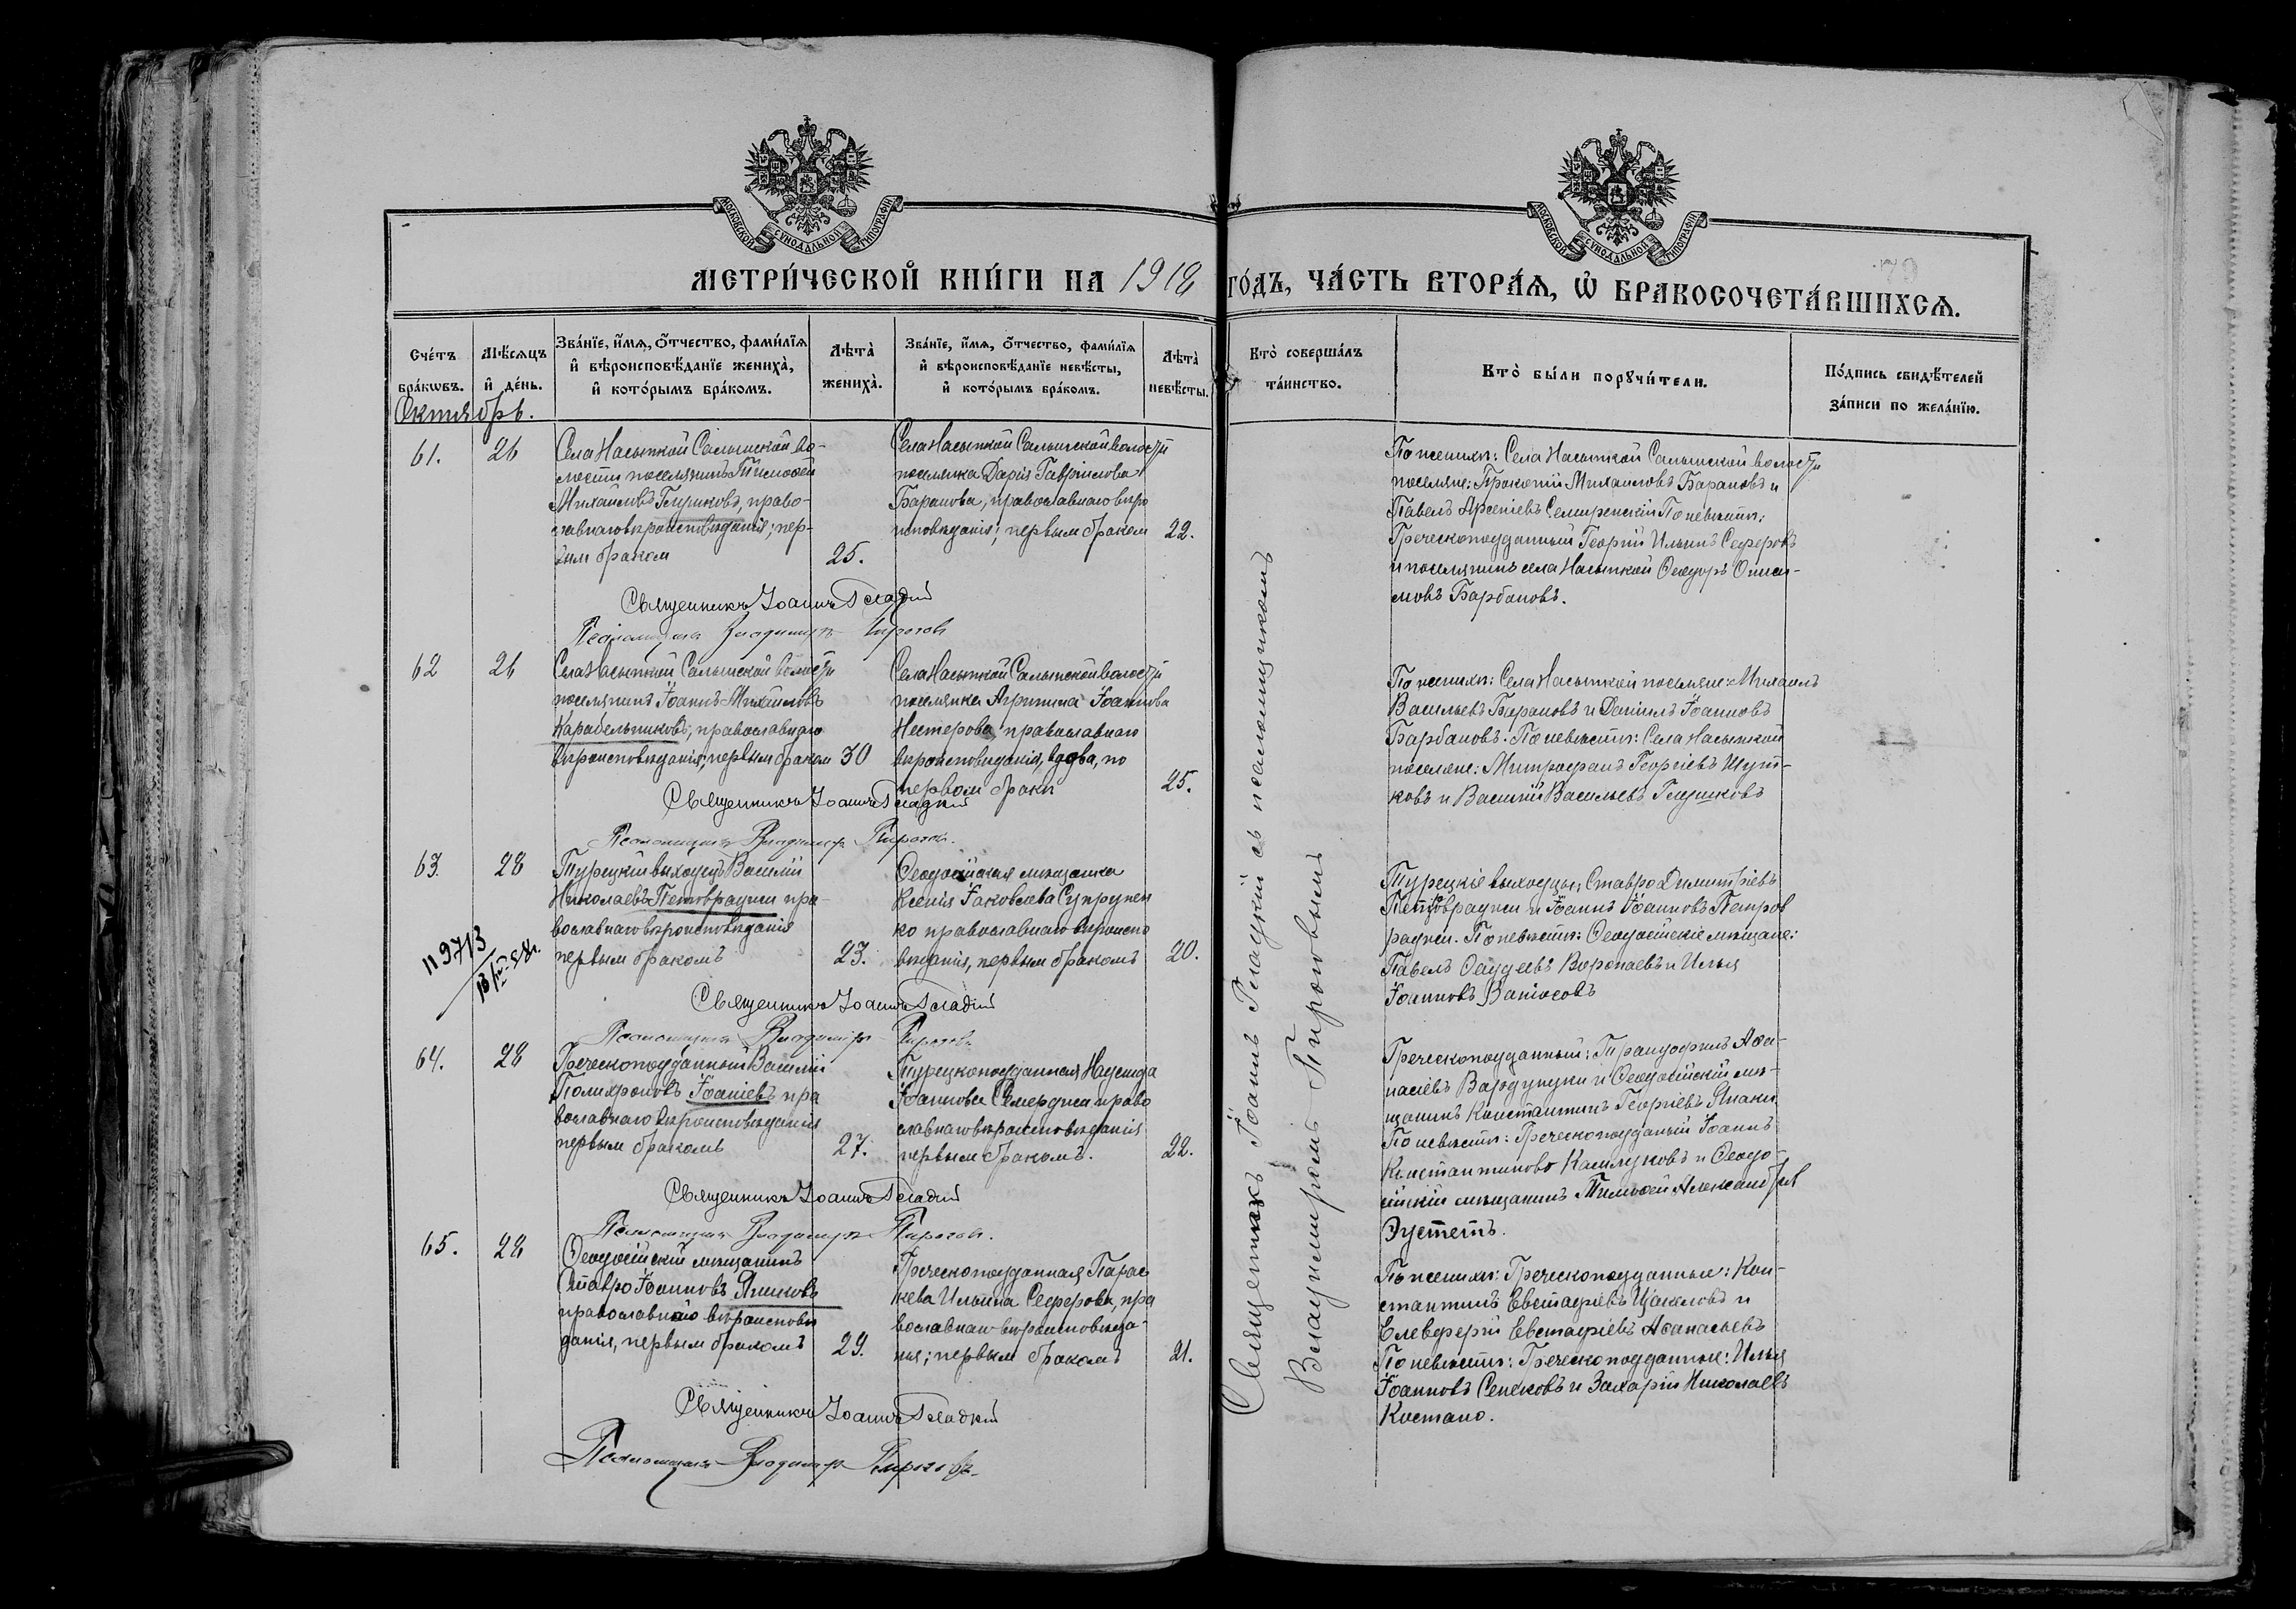 МОСКОВСКОЙ СѴНОДАЛЬНОЙ ТИПОГРАФІИ
МОСКОВСКОЙ СѴНОДАЛЬНОЙ ТИПОГРАФІИ
МЕТРИ́ЧЕСКОЙ КНИ́ГИ НА 1918 ГО́ДЪ, ЧА́СТЬ ВТОРА́Я, Ѡ҆ БРАКОСОЧЕТА́ВШИХСЯ.
70
Сче́тъ бра́кѡвъ.
Мѣ́сяцъ и҆ де́нь.
Зва́нїе, и҆́мя, ѻ҆́тчество, фами́лїя и҆ вѣроисповѣ́данїе жениха̀, и҆ кото́рымъ бра́комъ.
Лѣта̀ жениха̀.
Зва́нїе, и҆́мя, ѻ҆́тчество, фами́лїя и҆ вѣроисповѣ́данїе невѣ́сты, и҆ кото́рымъ бра́комъ.
Лѣта̀ невѣ́сты.
Кто̀ соверша́лъ та́инство.
Кто̀ бы́ли порꙋчи́тели.
По́дпись свидѣ́телей за́писи по жела́нїю.
Октябрь.
61.
26
Села Насыпкой Салынской во-
лости поселянинъ Тимоѳей
Михаиловъ Глушковъ, право-
славнаго вѣроисповѣданія; пер-
вым браком
25.
Села Насыпкой Салынской волости
поселянка Дарія Гавріилова
Баранова, православнаго вѣро
исповѣданія; первым браком
22.
По женихѣ: Села Насыпкой Салынской волости
поселяне: Прокопій Михаиловъ Барановъ и
Павелъ Арсеніевъ Семиренскій По невѣстѣ:
Греческоподданный Георгій Ильинъ Сеферовъ
и поселянинъ села Насыпкой Ѳеодоръ Ониси-
мовъ Барбановъ.
Священникъ Іоаннъ Гладкій
Псаломщикъ Владимиръ Пироговъ
62
26
Села Насыпкой Салынской волости
поселянинъ Іоаннъ Михаиловъ
Карабельниковъ, православнаго
вѣроисповѣданія; первым браком
30
Села Насыпкой Салынской волости
поселянка Агрипина Іоаннова
Нестерова православнаго
вѣроисповѣданія, вдова, по
первом бракѣ
25.
По женихѣ: Села Насыпкой поселяне: Михаилъ
Васильевъ Барановъ и Даніилъ Іоанновъ
Барбановъ. По невѣстѣ: Села Насыпкой
поселяне: Митрофанъ Георгіевъ Шут-
ковъ и Василій Васильевъ Глушковъ
Священникъ Іоаннъ Гладкій
Псаломщикъ Владимиръ Пироговъ.
63.
28
Турецкій выходецъ Василій
Николаевъ Петовраджи пра-
вославнаго вѣроисповѣданія
первым бракомъ
23.
Ѳеодосійская мѣщанка
Ксенія Іаковлева Супрунен
ко православнаго вѣроиспо
вѣданія, первым бракомъ
20.
Турецкіе выходцы: Ставро Димитріевъ
Петовраджи и Іоаннъ Іоанновъ Петров
раджи. По невѣстѣ: Ѳеодосійскіе мѣщане:
Павелъ Ѳаддеевъ Воропаевъ и Илья
Іоанновъ Ваніосовъ
Священникъ Іоаннъ Гладкій
Псаломщикъ Владимиръ Пироговъ
64.
28
Греческоподданный Василій
Полихроновъ Іоаніевъ пра
вославнаго вѣроисповѣданія
первым бракомъ
27.
Турецкоподданная Надежда
Іоаннова Семерджи право
славнаго вѣроисповѣданія
первым бракомъ.
22.
Греческоподданный: Трандофилъ Аѳа-
насіевъ Вардунуки и Ѳеодосійский мѣ-
щанинъ Константинъ Георгіевъ Янаки
По невѣстѣ: Греческоподданый Іоаннъ
Константиново Камлуковъ и Ѳеодо-
сійскій мѣщанинъ Тимоѳей Александров
Эустетъ.
Священникъ Іоаннъ Гладкій
Псаломщикъ Владимиръ Пироговъ.
65.
28
Ѳеодосійский мѣщанинъ
Ставро Іоанновъ Яшковъ
православнаго вѣроисповѣ
данія, первым бракомъ
29.
Греческоподданная Парас
кева Ильина Сеферова, пра
вославнаго вѣроисповѣда-
нія; первым бракомъ
21.
По женихѣ: Греческоподданные: Кон-
стантинъ Евстафіевъ Цакаловъ и
Елевферій Евстафіевъ Аѳанасьевъ
По невѣстѣ: Греческоподданные: Илья
Іоанновъ Сенековъ и Захарій Николаевъ
Костано.
Священникъ Іоаннъ Гладкій
Псаломщикъ Владимиръ Пироговъ.
Священникъ Іоаннъ Гладкій съ псаломщикомъ
Владимиромъ Пироговымъ